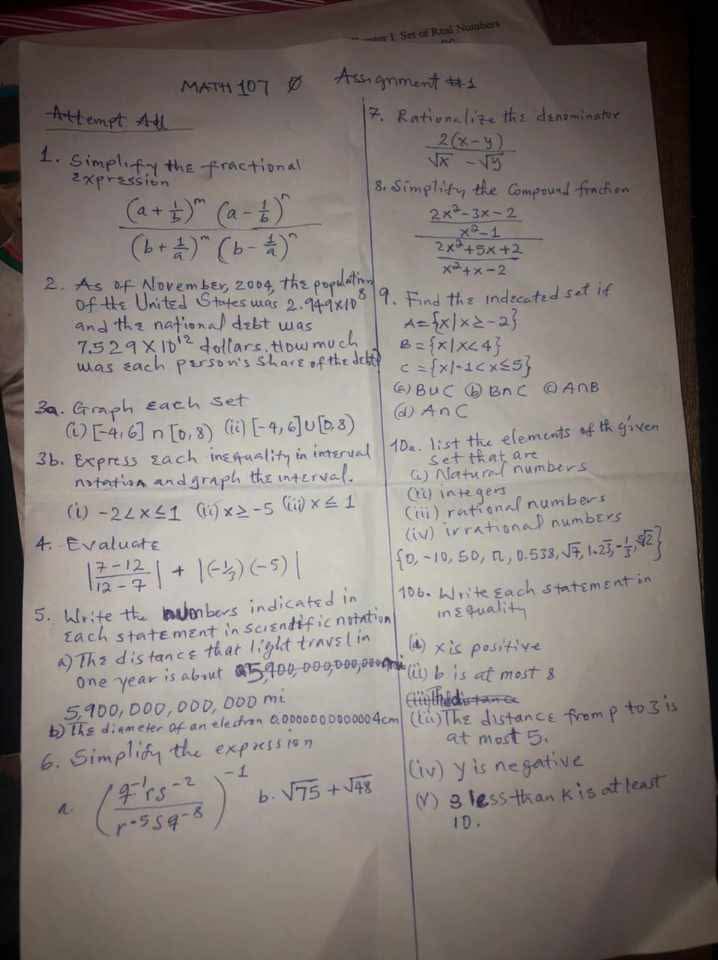 Chapter 1 Set of Real Numbers
MATH 107 Ø Assignment #1
Attempt All
1. Simplify the fractional
expression
(a + 1/b)^m (a - 1/b)^n
(b + 1/a)^m (b - 1/a)^n
2. As of November, 2004, the population
of the United States was 2.949x10^8
and the national debt was
7.529 x 10^12 dollars. How much
was each person's share of the debt?
3a. Graph each set
(i) [-4,6] ∩ [0,8) (ii) [-4,6] ∪ [0,8)
3b. Express each inequality in interval
notation and graph the interval.
(i) -2<x≤1 (ii) x≥-5 (iii) x≤1
4. Evaluate
|7-12 / 12-7| + |(-1/3)(-5)|
5. Write the numbers indicated in
each statement in scientific notation
a) The distance that light travel in
one year is about
5,900,000,000,000 mi
b) The diameter of an electron 0.0000000000004cm
6. Simplify the expression
a. (q^-1 r s^-2 / r^-5 s q^-8)^-1 b. √75 + √48
7. Rationalize the denominator
2(x-y)
√x - √y
8. Simplify the Compound fraction
2x²-3x-2
x²-1
2x²+5x+2
x²+x-2
9. Find the indecated set if
A={x|x≥-2}
B={x|x<4}
C={x|-1<x≤5}
(a) B∪C (b) B∩C (c) A∩B
(d) A∩C
10a. list the elements of the given
set that are
(i) Natural numbers
(ii) integers
(iii) rational numbers
(iv) irrational numbers
{0, -10, 50, π, 0.538, √7, 1.23, -1/3, ∛2}
10b. Write each statement in
inequality
(i) x is positive
(ii) b is at most 8
(iii) The distance from p to 3 is
at most 5.
(iv) y is negative
(v) 3 less than k is at least
10.